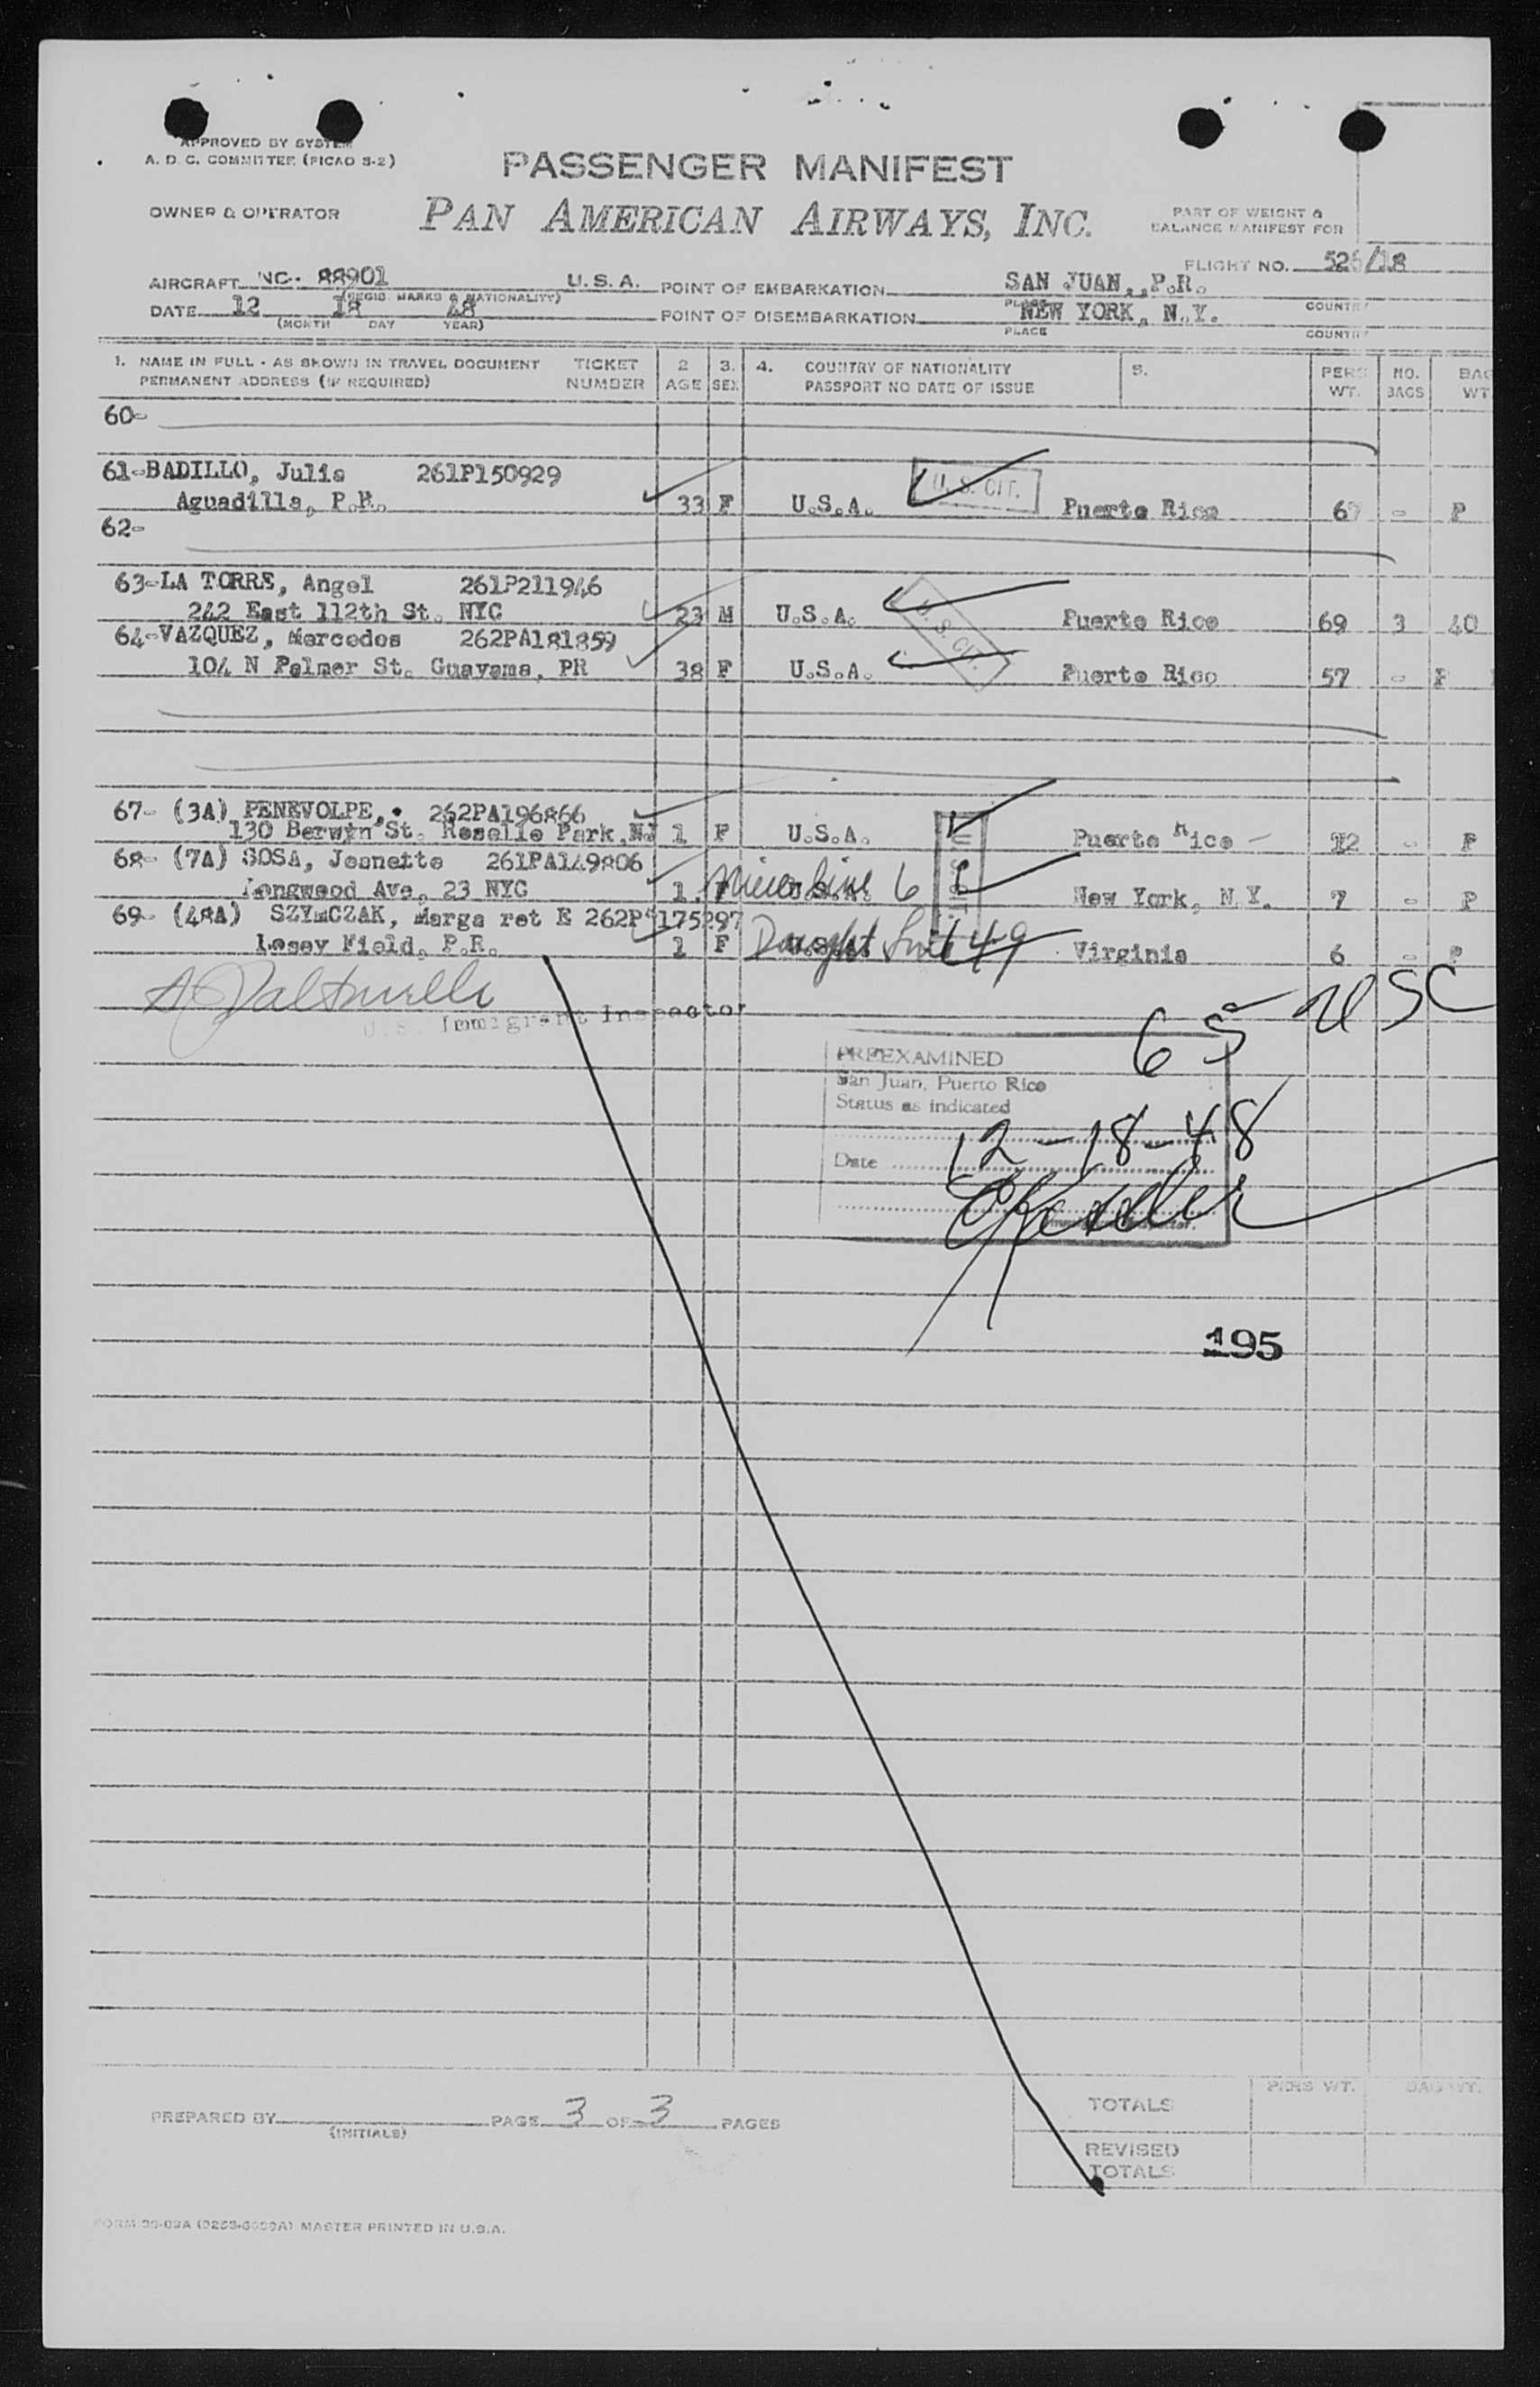 APPROVED BY SYSTEM
A. D. C. COMMITTEE (PICAO S-2)
PASSENGER MANIFEST
OWNER & OPERATOR
PAN AMERICAN AIRWAYS, INC.
PART OF WEIGHT &
BALANCE MANIFEST FOR
FLIGHT NO. 526/18
AIRCRAFT NC-- 88901 U. S. A. POINT OF EMBARKATION SAN JUAN,,P.R.
(REGIS. MARKS & NATIONALITY) PLACE COUNTRY
DATE 12 18 48 POINT OF DISEMBARKATION NEW YORK, N.Y.
(MONTH DAY YEAR) PLACE COUNTRY
1. NAME IN FULL - AS SHOWN IN TRAVEL DOCUMENT TICKET 2 3. 4. COUNTRY OF NATIONALITY 5. PERS NO. BAG
PERMANENT ADDRESS (IF REQUIRED) NUMBER AGE SEX PASSPORT NO DATE OF ISSUE WT. BAGS WT
60-
61-BADILLO, Julia 261P150929 U. S. CIT.
Aguadilla, P.R. 33 F U.S.A. Puerto Rico - P
62-
63-LA TORRE, Angel 261P211946
242 East 112th St. NYC 23 M U.S.A. U. S. CIT. Puerto Rico 69 3 40
64-VAZQUEZ, Mercedes 262PA181859
104 N Palmer St. Guayama, PR 38 F U.S.A. Puerto Rico 57 - P
67- (3A) PENEVOLPE,. 262PA196866
130 Berwyn St. Roselle Park,NJ 1 F U.S.A. U. S. CIT. Puerto Rico - 12 - P
68- (7A) SOSA, Jeanette 261PA149806
Longwood Ave, 23 NYC 1 F U.S.A. 6 New York, N.Y. 7 - P
69- (48A) SZYMCZAK, Marga ret E 262PA175297
Losey Field, P.R. 1 F U.S.A. 49 Virginia 6 - P
U. S. Immigrant Inspector
65 USC
PREEXAMINED
San Juan, Puerto Rico
Status as indicated
Date 12-18-48
Immigrant Inspector.
195
PREPARED BY PAGE 3 OF 3 PAGES
(INITIALS)
PERS WT. BAG WT.
TOTALS
REVISED
TOTALS
MASTER PRINTED IN U.S.A.